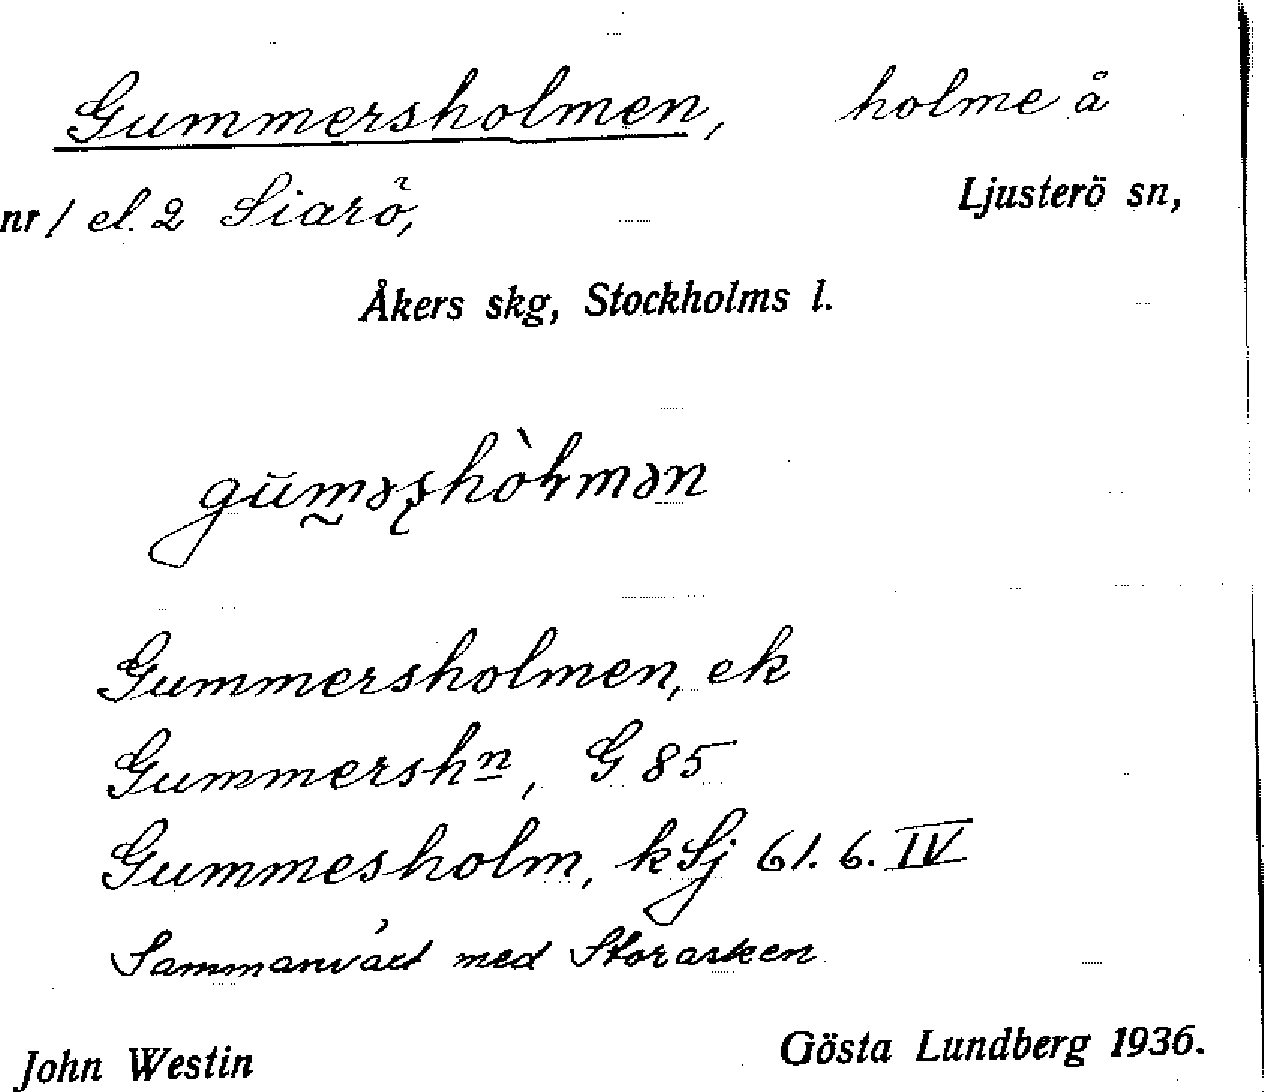 Gummersholmen, holme å
nr 1 el. 2 Siarö, Ljusterö sn,
Åkers skg, Stockholms l.
Gummersholmen, ek
Gummershn, G 85
Gummesholm, kSj 61. 6. IV
Sammanväxt med Storasken
John Westin Gösta Lundberg 1936.